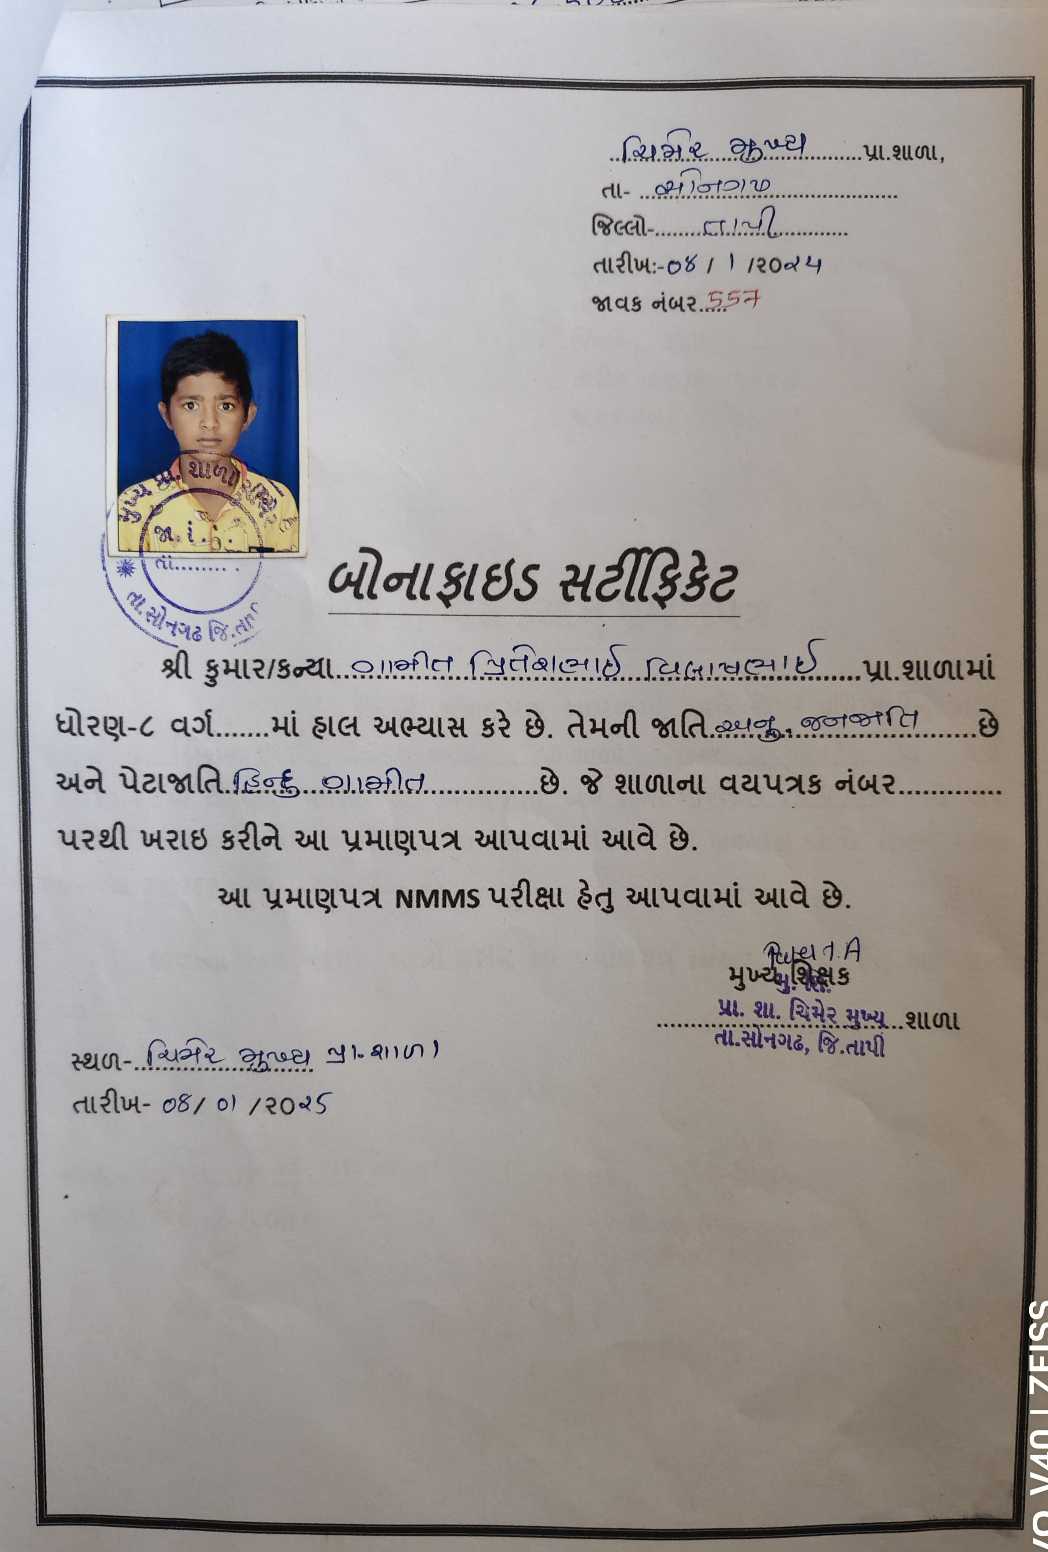 ચિમેર મુખ્ય પ્રા.શાળા,
તા- સોનગઢ
જિલ્લો- તાપી
તારીખ:-૦૪ / ૧ /૨૦૨૫
જાવક નંબર. 557
મુખ્ય પ્રા. શાળા ચિમેર
જા. નં.
તા.
તા.સોનગઢ જિ.તાપી
બોનાફાઇડ સર્ટીફિકેટ
શ્રી કુમાર/કન્યા. ગામીત પ્રિતેશભાઈ વિલાષભાઈ પ્રા.શાળામાં
ધોરણ-૮ વર્ગ.......માં હાલ અભ્યાસ કરે છે. તેમની જાતિ. અનુ. જનજાતિ છે
અને પેટાજાતિ. હિન્દુ ગામીત છે. જે શાળાના વયપત્રક નંબર.............
પરથી ખરાઇ કરીને આ પ્રમાણપત્ર આપવામાં આવે છે.
આ પ્રમાણપત્ર NMMS પરીક્ષા હેતુ આપવામાં આવે છે.
મુખ્ય શિક્ષક
પ્રા. શા. ચિમેર મુખ્ય શાળા
તા.સોનગઢ, જિ.તાપી
સ્થળ- ચિમેર મુખ્ય પ્રા. શાળા
તારીખ- ૦૪/ ૦૧ /૨૦૨૫
V40 | ZEISS